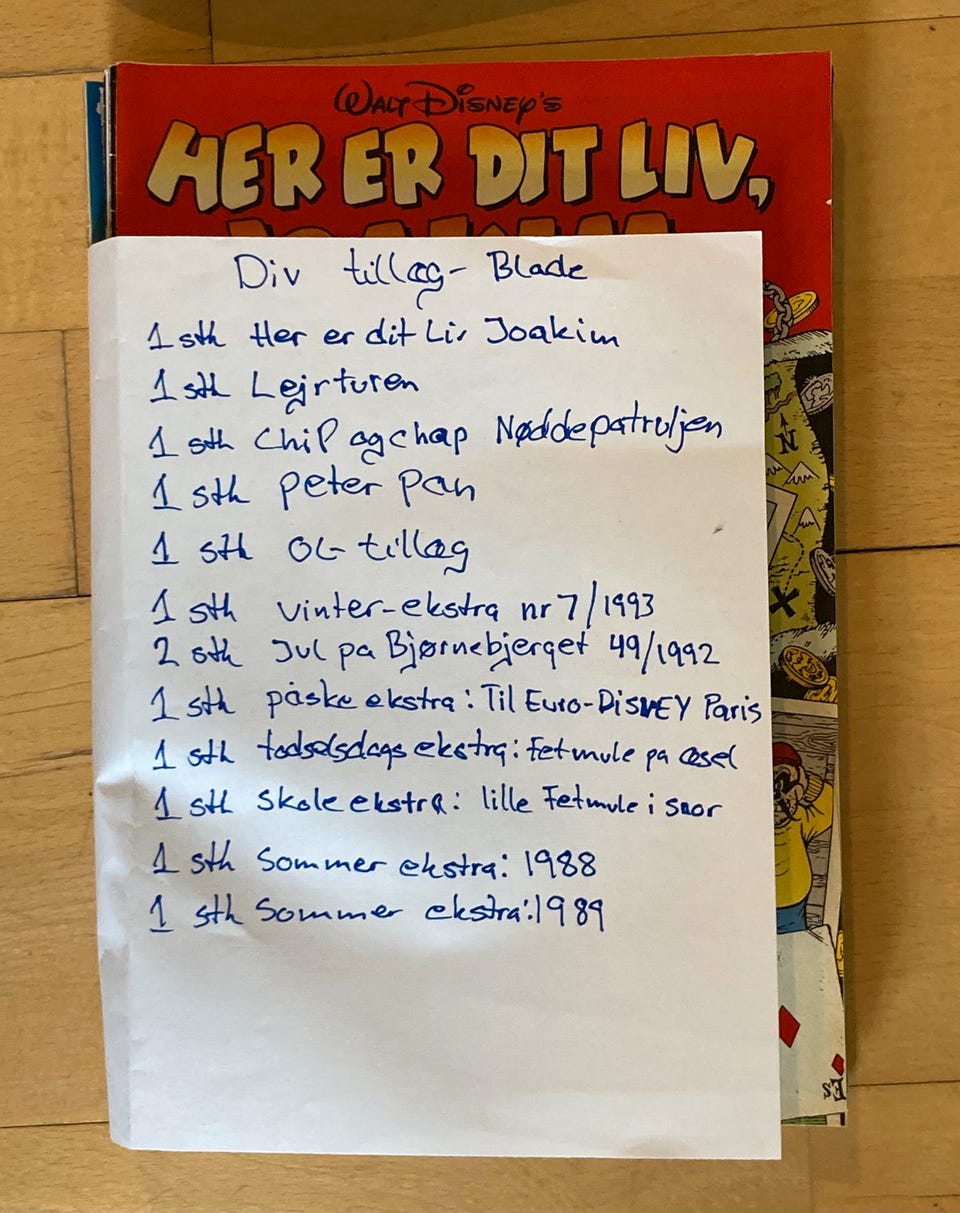 WALT DISNEY'S
HER ER DIT LIV,
Div tillæg - Blade
1 stk Her er dit Liv Joakim
1 stk Lejrturen
1 stk Chip og chap Nøddepatruljen
1 stk peter pan
1 stk OL-tillæg
1 stk vinter-ekstra nr 7/1993
2 stk Jul pa Bjørnebjerget 49/1992
1 stk påske ekstra: Til Euro-DisNEY Paris
1 stk fødselsdags ekstra: Fetmule pa æsel
1 stk Skole ekstra: lille Fetmule i snor
1 stk Sommer ekstra: 1988
1 stk Sommer ekstra: 1989
N